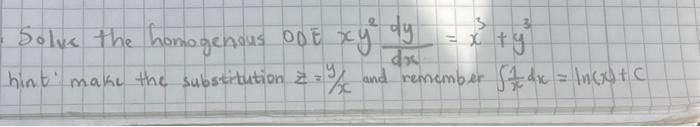 Solve the homogenous ODE xy² dy/dx = x³ + y³
hint: make the substitution z = y/x and remember ∫ 1/x dx = ln(x) + C